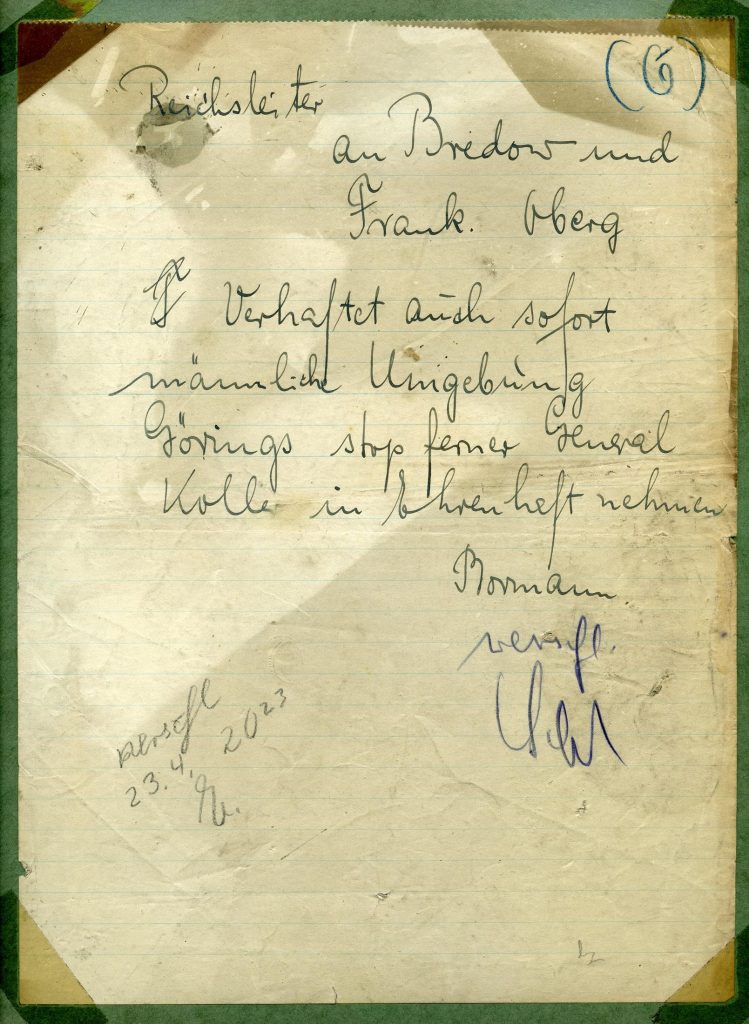 (6)
Reichsleiter
an Bredow und
Frank. Oberg
Verhaftet auch sofort
männliche Umgebung
Görings stop ferner General
Koller in Ehrenhaft nehmen
Bormann
verschl.
verschl
23.4. 2023